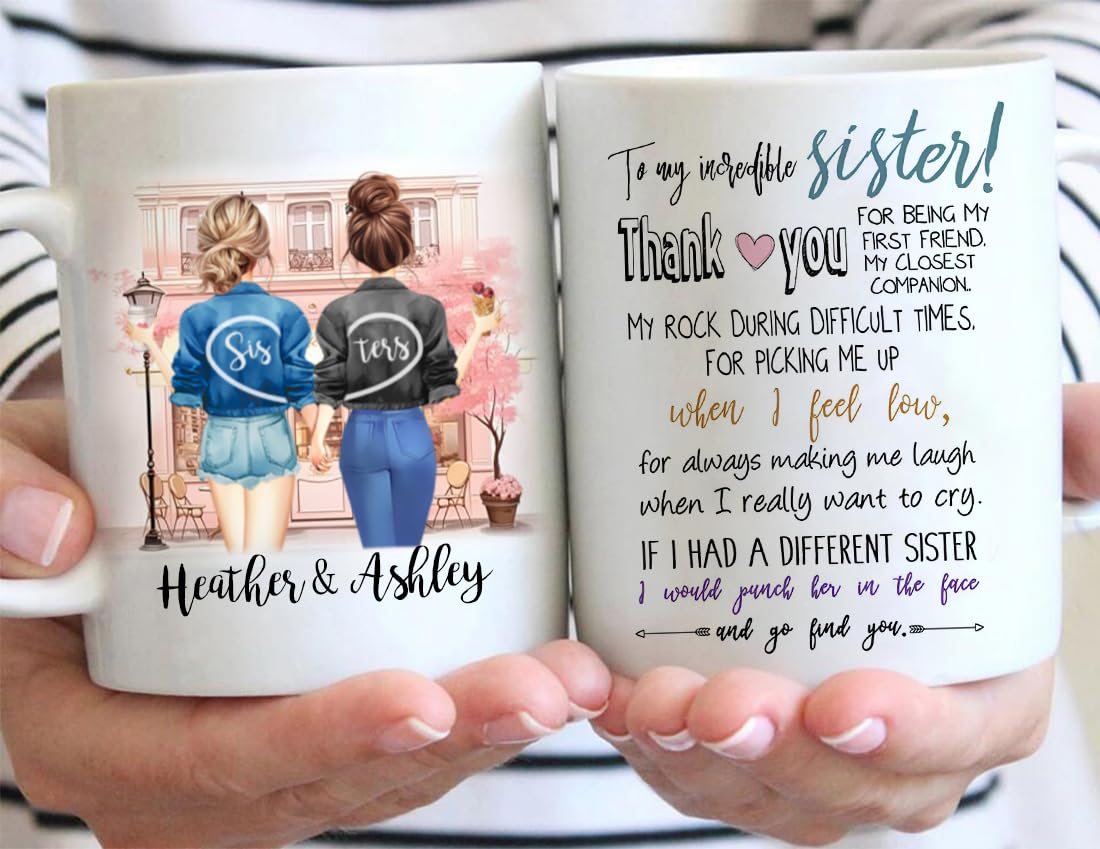 Sis ters
Heather & Ashley
To my incredible sister!
Thank you
FOR BEING MY
FIRST FRIEND.
MY CLOSEST
COMPANION.
MY ROCK DURING DIFFICULT TIMES.
FOR PICKING ME UP
when I feel low,
for always making me laugh
when I really want to cry.
IF I HAD A DIFFERENT SISTER
I would punch her in the face
and go find you.